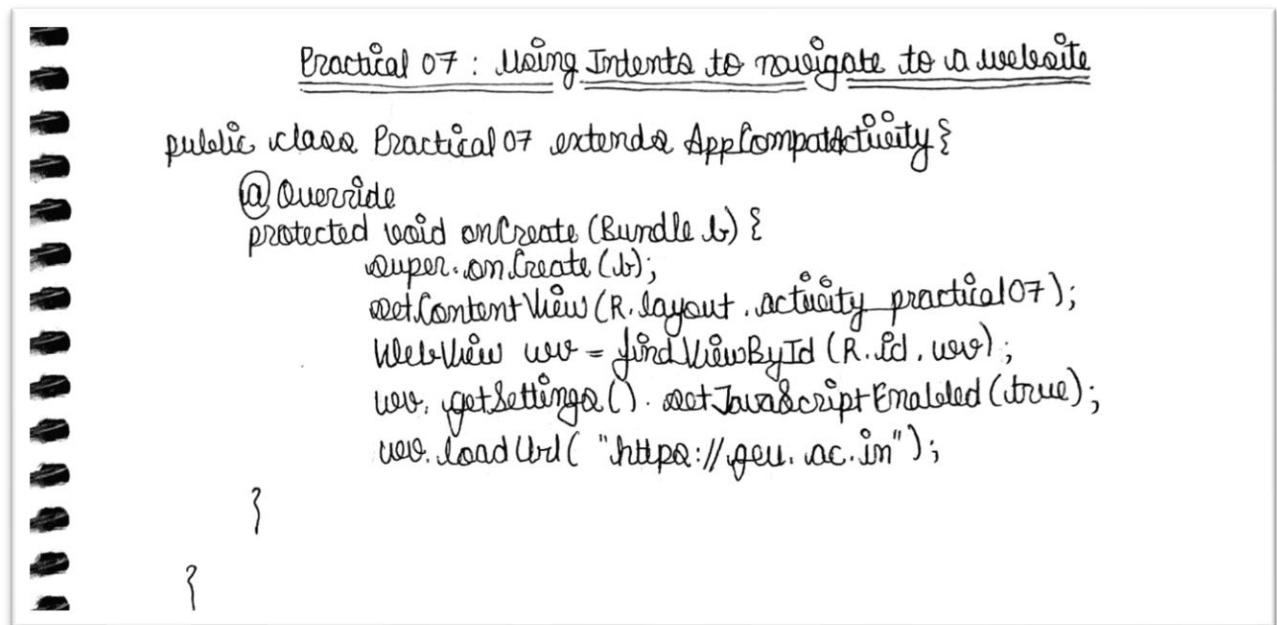 Practical 07 : Using Intents to navigate to a website
public class Practical 07 extends AppCompatActivity {
@Override
protected void onCreate (Bundle b) {
super.onCreate (b);
setContentView (R.layout.activity_practical07);
WebView wv = findViewById (R.id.wv);
wv.getSettings().setJavaScriptEnabled(true);
wv.loadUrl( "https://geu.ac.in");
}
}